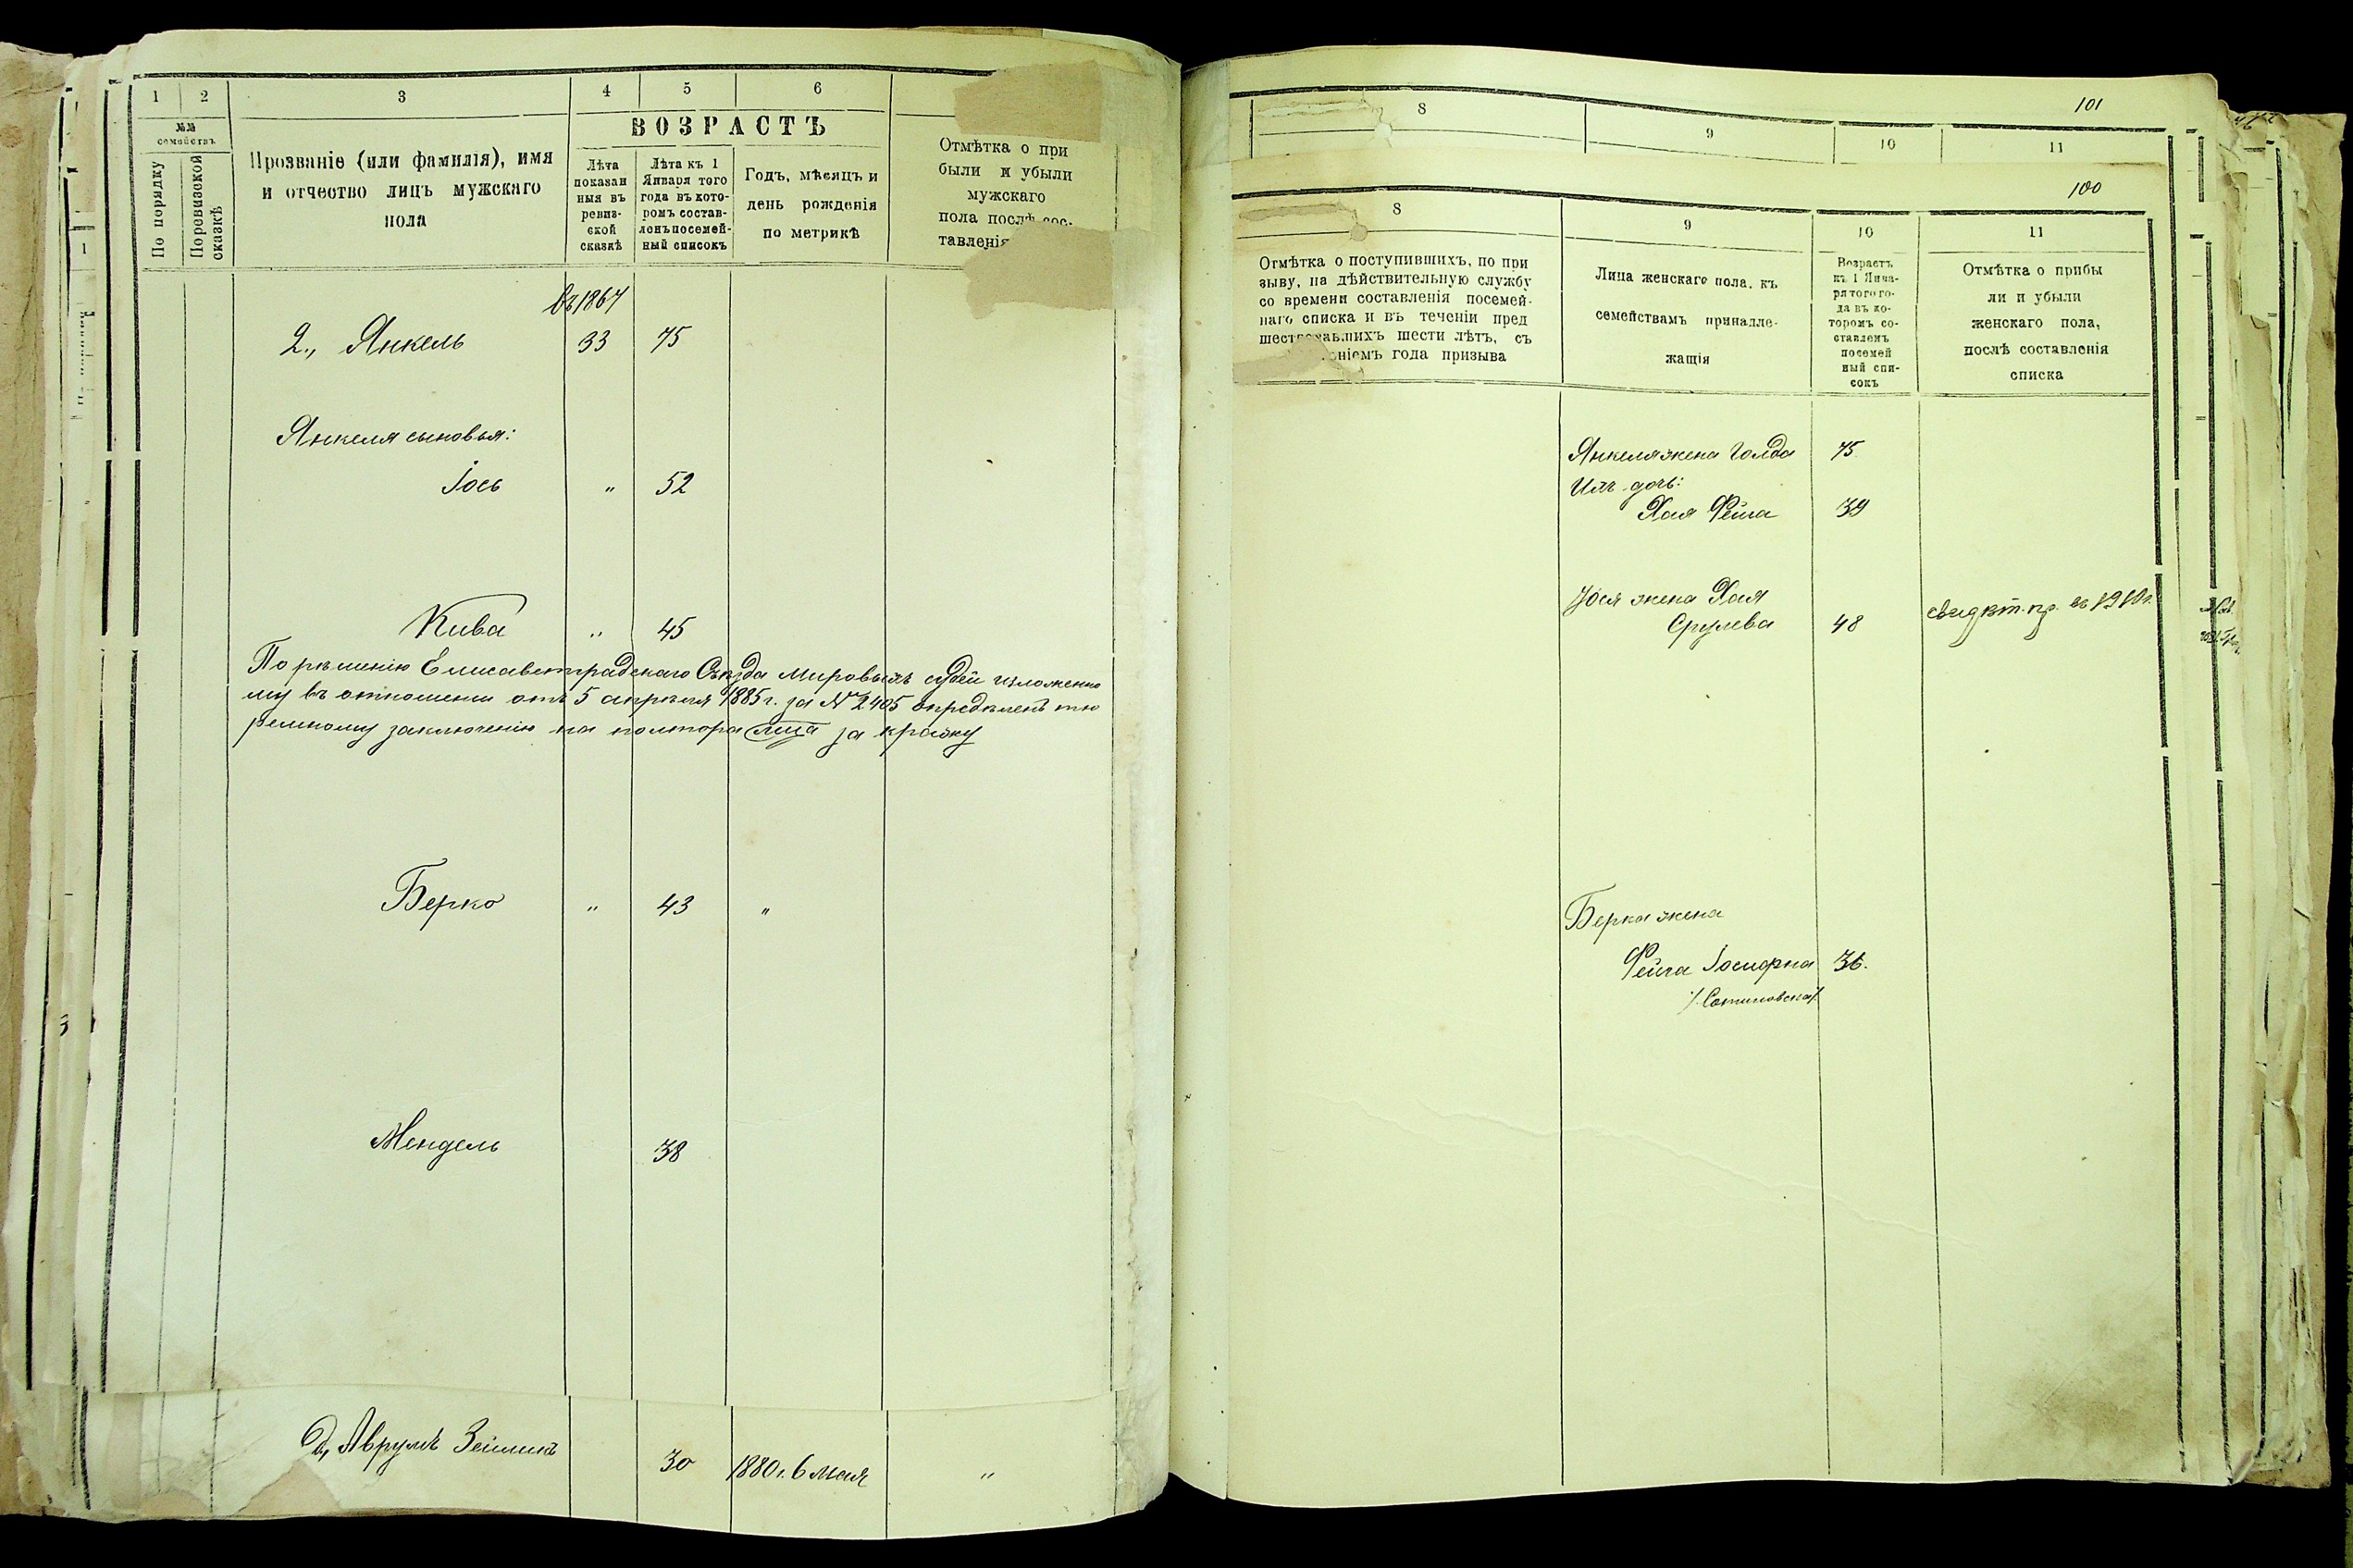 1 2 3 4 5 6
№№ семействъ
По порядку
По ревизской сказкѣ
Прозваніе (или фамилія), имя
и отчество лицъ мужскаго
пола
ВОЗРАСТЪ
Лѣта
показан
ныя въ
ревиз-
ской
сказкѣ
Лѣта къ 1
Января того
года въ кото-
ромъ состав-
ленъ посемей-
ный списокъ
Годъ, мѣсяцъ и
день рожденія
по метрикѣ
Отмѣтка о при
были и убыли
мужскаго
пола послѣ сос-
тавленія
въ 1867
2., Янкель 33 75
Янкеля сыновья:
Іось " 52
Кива " 45
По рѣшенію Елисаветградскаго Съѣзда Мировыхъ судей изложенно
му въ отношеніи отъ 5 апрѣля 1885 г. за № 2405 опредѣленъ тю
ремному заключенію на полтора мца за кражу
Берко " 43 "
Мендель 38
Аврумъ Зейликъ 30 1880 г. 6 мая "
101
8 9 10 11
100
8 9 10 11
Отмѣтка о поступившихъ, по при
зыву, на дѣйствительную службу
со времени составленія посемей-
наго списка и въ теченіи пред
шествовавшихъ шести лѣтъ, съ
ніемъ года призыва
Лица женскаго пола, къ
семействамъ принадле-
жащія
Возрастъ
къ 1 Янва-
ря того го-
да въ ко-
торомъ со-
ставленъ
посемей
ный спи-
сокъ
Отмѣтка о прибы
ли и убыли
женскаго пола,
послѣ составленія
списка
Янкеля жена Голда 75
Ихъ дочь:
Хая Фейга 39
Іося жена Хая
Срулева 48 свидѣт. пр. въ 1910 г.
Берка жена
Фейга Іосифна 36.